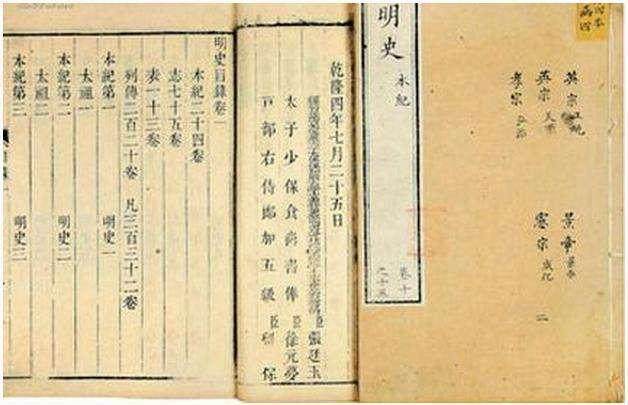 英宗 正統 景帝 景泰
英宗 天順 憲宗 成化 二
孝宗 弘治
明史 本紀 卷十
乾隆四年七月二十五日
臣張廷玉
太子少保食尚書俸臣徐元夢
戶部右侍郎加五級臣留保
明史目錄卷一
本紀二十四卷
志七十五卷
表一十三卷
列傳二百二十卷 凡三百三十二卷
本紀第一 明史一
太祖一
本紀第二 明史二
太祖二
本紀第三 明史三